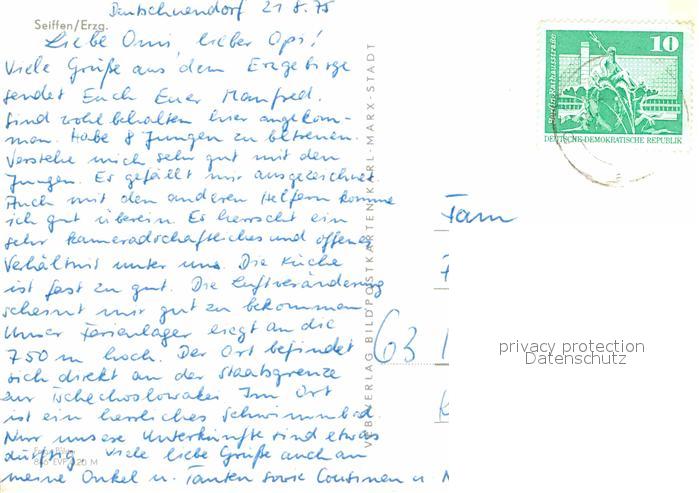 Deutschneudorf 21.8.75
Seiffen/Erzg.
Liebe Omi, lieber Opi!
Viele Grüße aus dem Erzgebirge
sendet Euch Euer Manfred.
Sind wohl behalten hier angekom-
men. Habe 8 Jungen zu betreuen.
Verstehe mich sehr gut mit den
Jungen. Es gefällt mir ausgezeichnet
Auch mit den anderen Helfern komme
ich gut überein. Es herrscht ein
sehr kameradschaftliches und offenes
Verhältnis unter uns. Die Küche
ist fast zu gut. Die Luftveränderung
scheint mir gut zu bekommen.
Unser Ferienlager liegt an die
750 m hoch. Der Ort befindet
sich direkt an der Staatsgrenze
zur Tschechoslowakei. Im Ort
ist ein herrliches Schwimmbad.
Nur unsere Unterkünfte sind etwas
dürftig. Viele liebe Grüße auch an
meine Onkel u. Tanten sowie Cousinen u
BILDPOSTKARTEN KARL-MARX-STADT
10
Berlin Rathausstraße
DEUTSCHE DEMOKRATISCHE REPUBLIK
Fam
63
privacy protection
Datenschutz